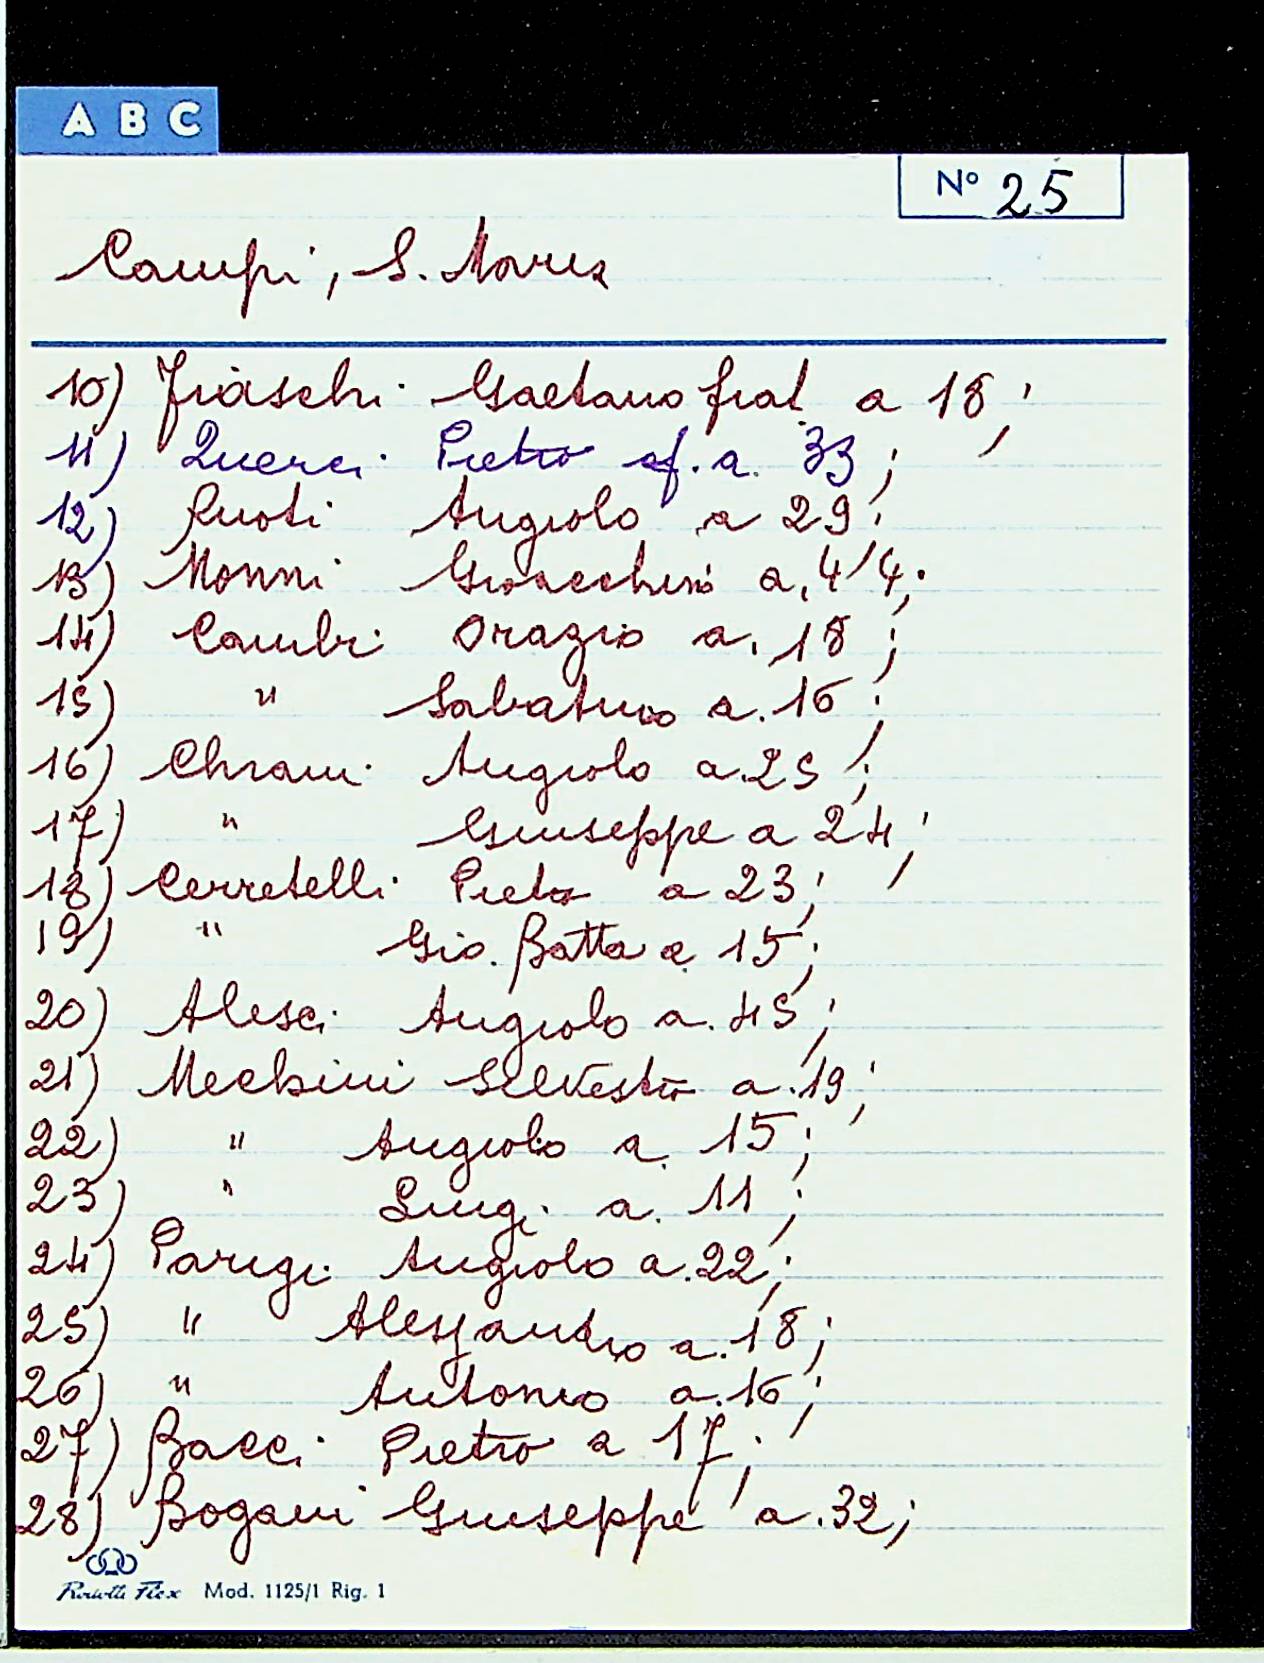 A B C
Nº 25
Campi, S. Maria
10) Fiaschi Gaetano frat. a 18;
11) Querci Pietro a. 33;
12) Ruoti Angiolo a 29;
13) Monni Gioacchino a. 44;
14) Cambi Orazio a. 18;
15) " Salvatore a. 16;
16) Chiani Angiolo a. 25;
17) " Giuseppe a 24;
18) Cerretelli Pietro a 23;
19) " Gio. Batta a 15;
20) Alesci Angiolo a. 45;
21) Mechini Silvestro a. 19;
22) " Angiolo a. 15;
23) " Luigi a. 11;
24) Parigi Angiolo a. 22;
25) " Alessandro a. 18;
26) " Antonio a. 16;
27) Bacci Pietro a 17;
28) Bogani Giuseppe a. 32;
Flex Mod. 1125/1 Rig. 1